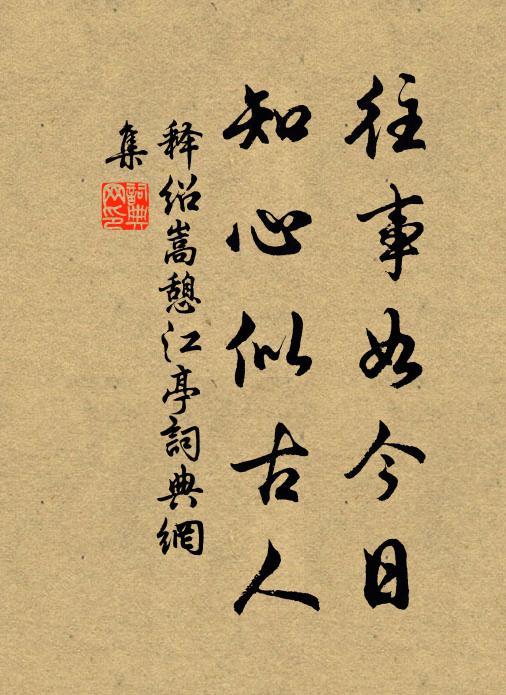 往事如今日
知心似古人
释绍嵩憩江亭詞典網
集
詞典网印